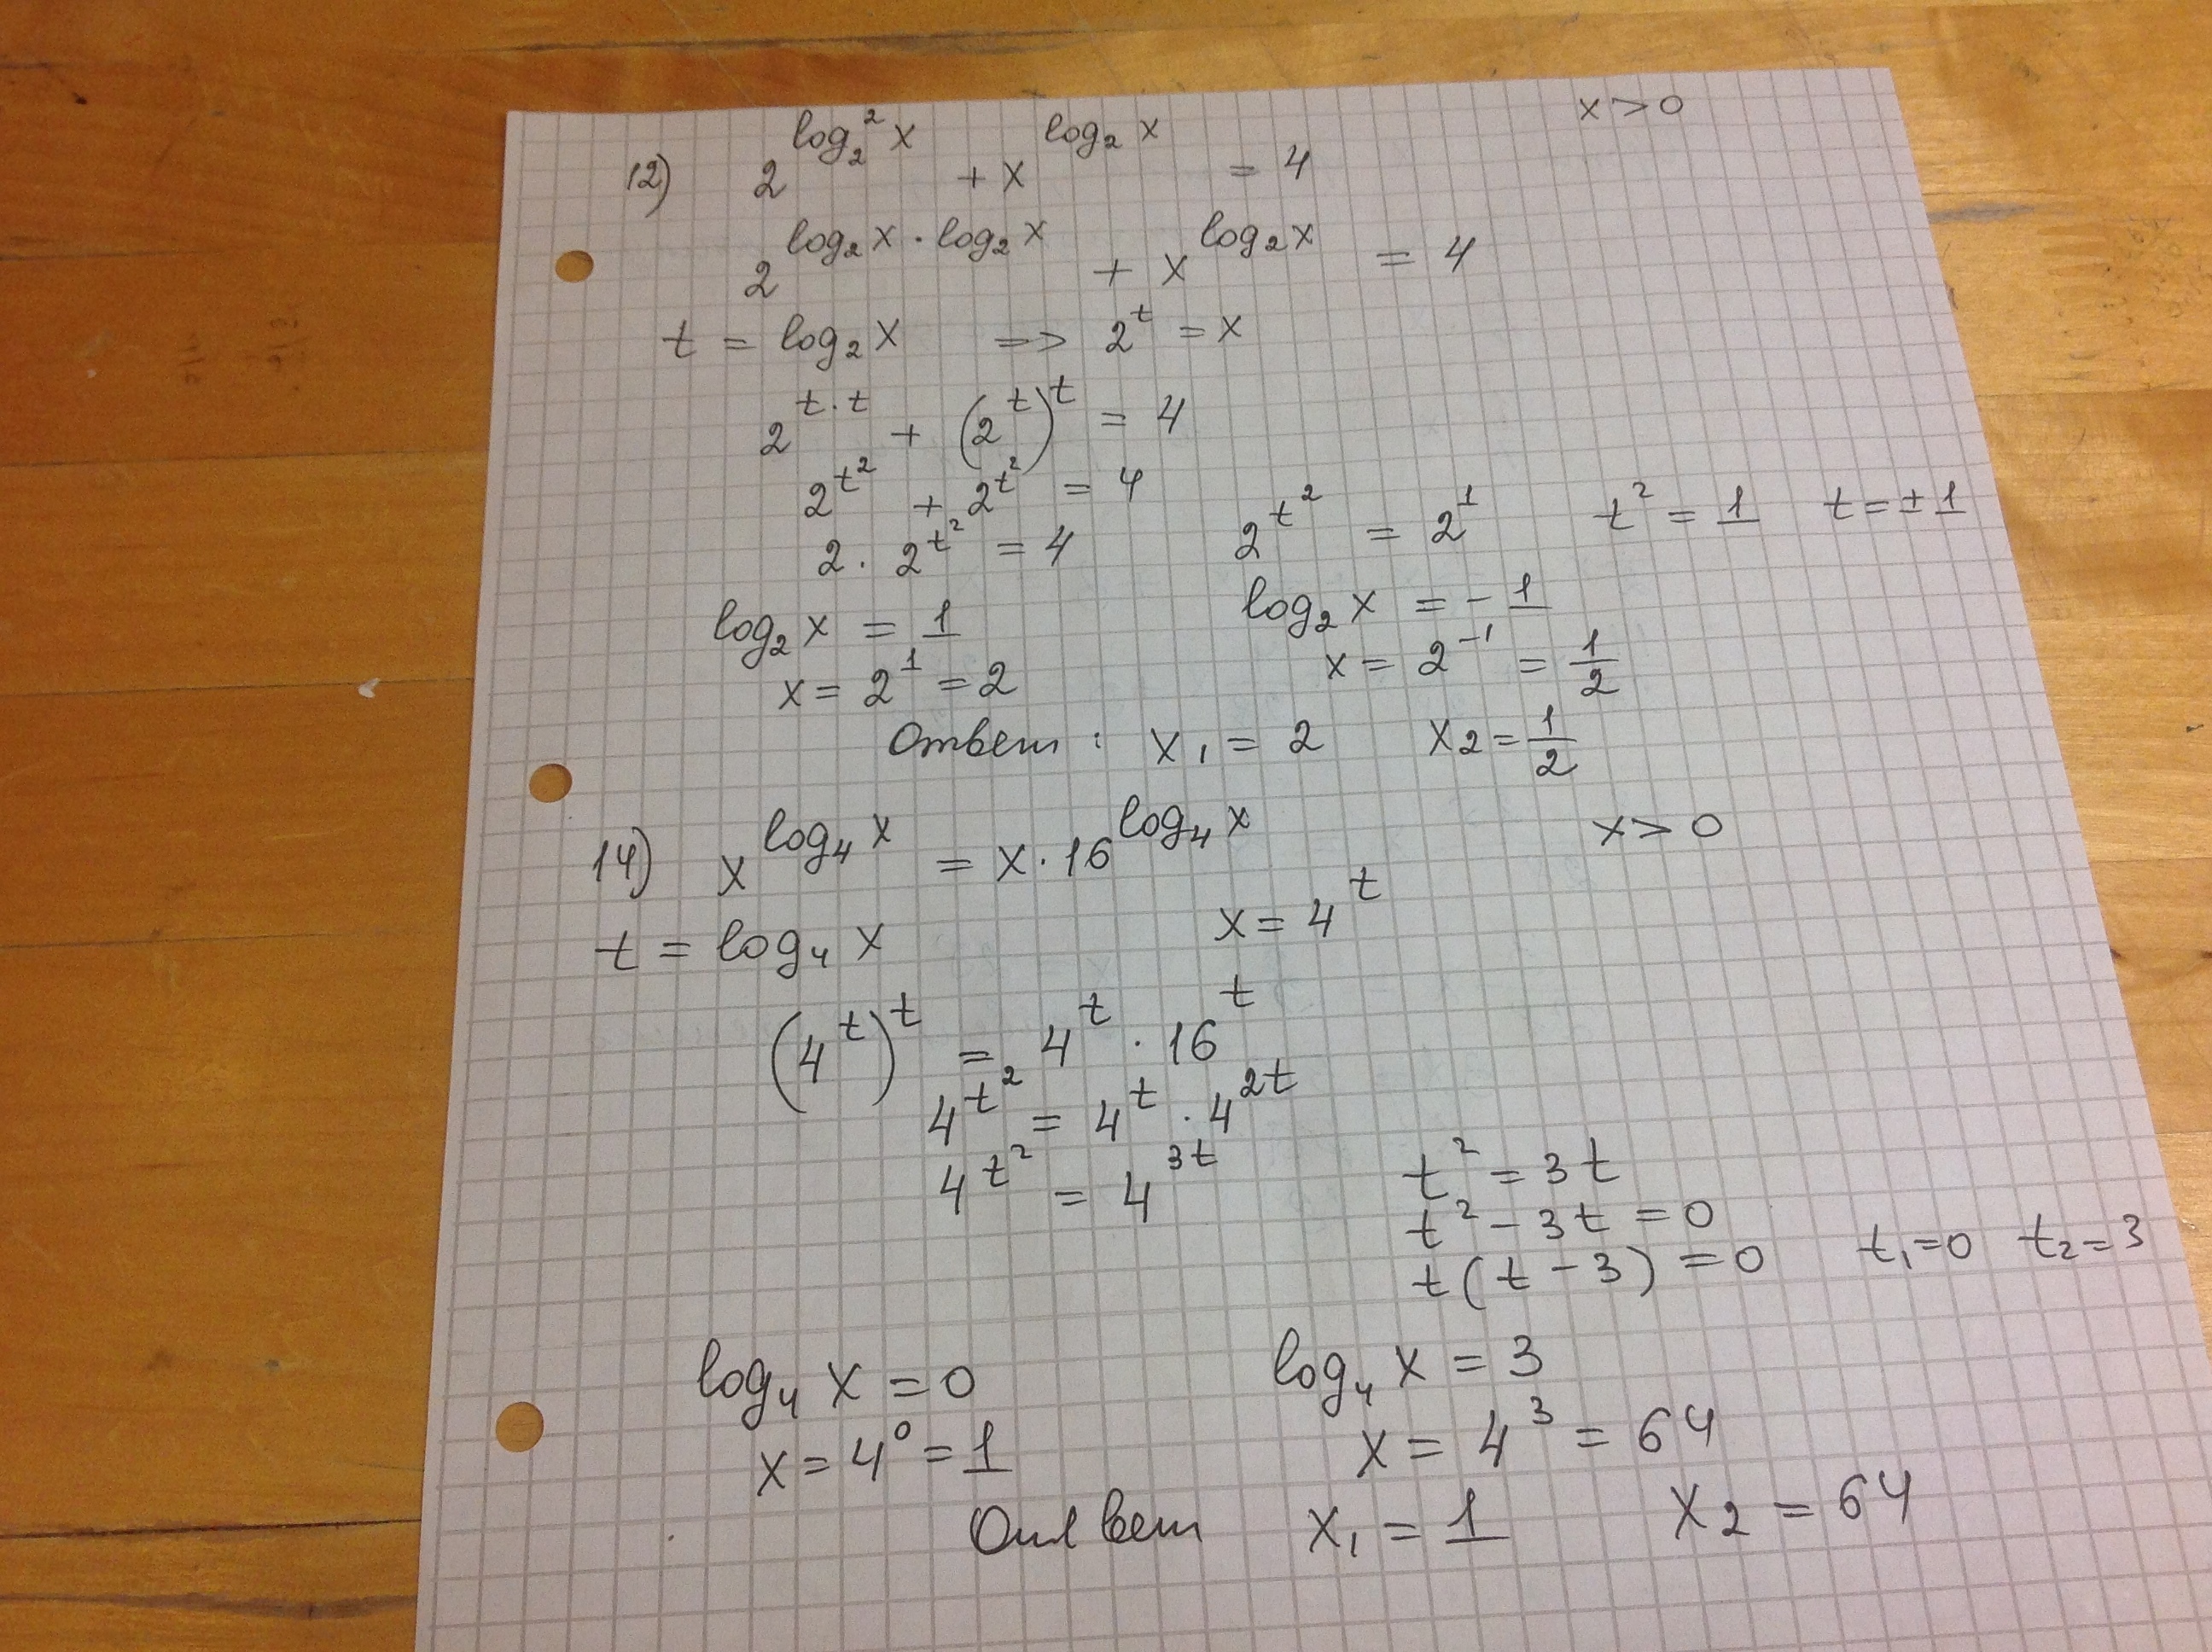 12) 2^(log₂² x) + x^(log₂ x) = 4 x > 0
2^(log₂ x · log₂ x) + x^(log₂ x) = 4
t = log₂ x => 2^t = x
2^(t·t) + (2^t)^t = 4
2^(t²) + 2^(t²) = 4
2 · 2^(t²) = 4 2^(t²) = 2^1 t² = 1 t = ± 1
log₂ x = 1 log₂ x = - 1
x = 2^1 = 2 x = 2^(-1) = 1/2
Ответ: x₁ = 2 x₂ = 1/2
14) x^(log₄ x) = x · 16^(log₄ x) x > 0
t = log₄ x x = 4^t
(4^t)^t = 4^t · 16^t
4^(t²) = 4^t · 4^(2t)
4^(t²) = 4^(3t) t² = 3t
t² - 3t = 0
t(t - 3) = 0 t₁ = 0 t₂ = 3
log₄ x = 0 log₄ x = 3
x = 4^0 = 1 x = 4^3 = 64
Ответ x₁ = 1 x₂ = 64